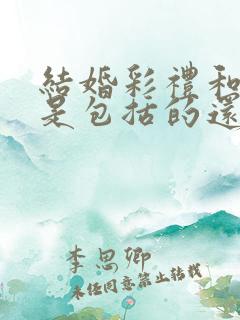 結婚彩禮和
是包括的還
李思卿
未经同意禁止转载